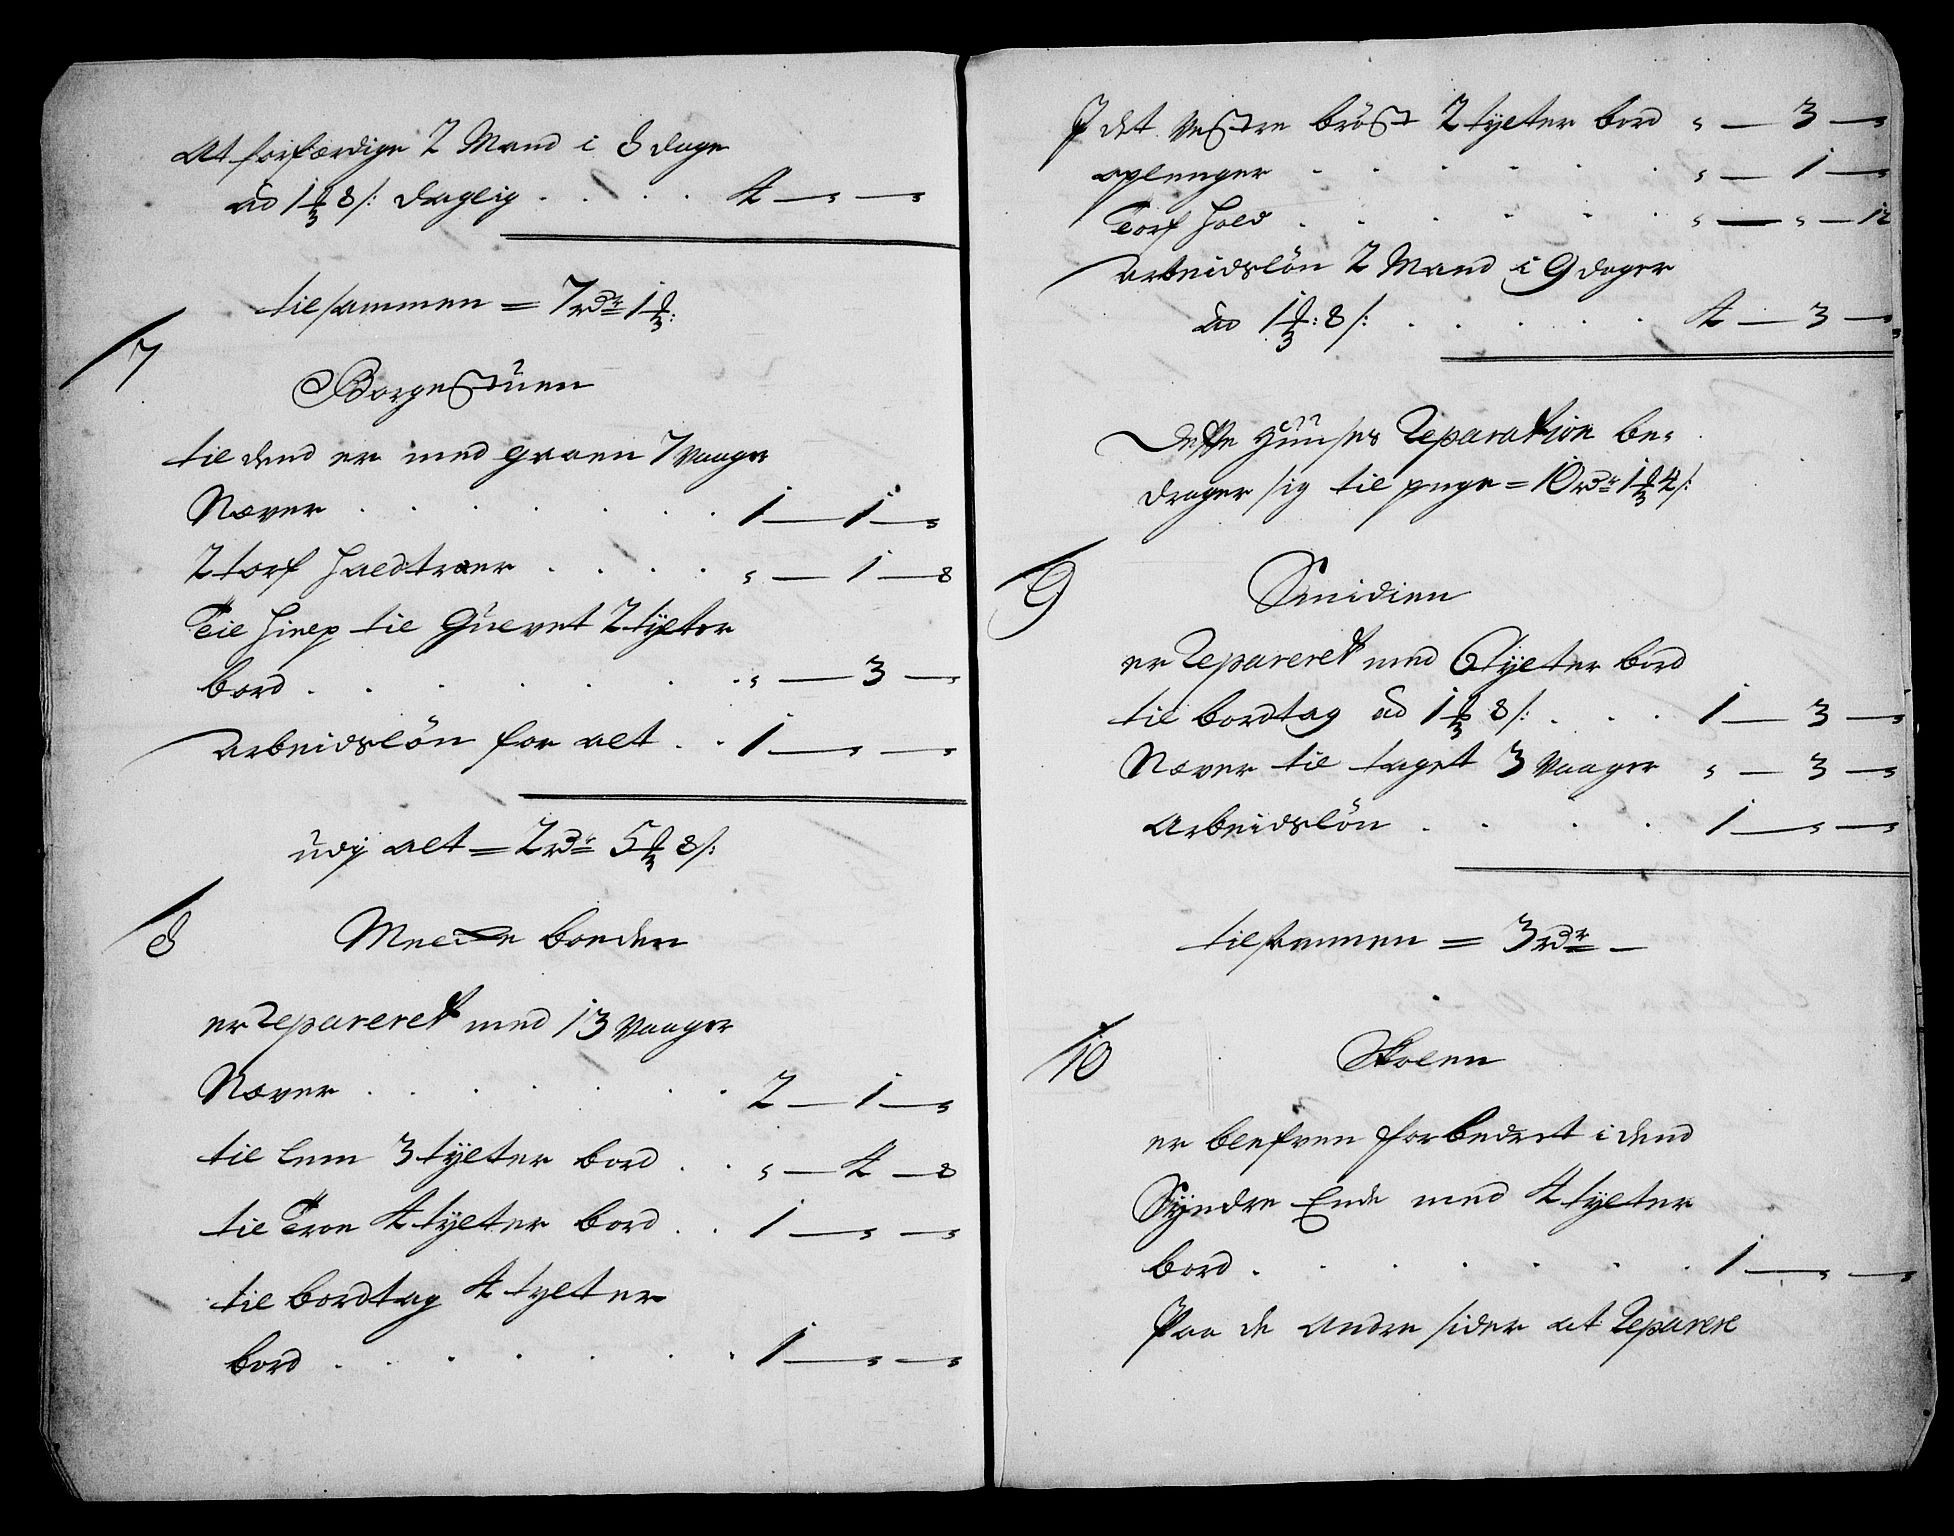 At forfærdige 2 Mand i 8 dage
ad 1 ℔ 8 /: daglig . . . . 4 — " — "
tilsammen = 7 rdr 1 ℔:
7
Borgestuen
til dend er med graen 7 Vaager
Næver . . . . . . 1 — 1 — "
2 torf haldtræer . . . . " — 1 — 8
Til hielp til Gulvet 2 tylter
bord . . . . . . . " — 3 — "
Arbeidsløn for alt . . 1 — " — "
udj alt = 2 rdr 5 ℔ 8 /:
8
Melke boeden
er Repareret med 13 Vaager
Næver . . . . . . 2 — 1 — "
til Lem 3 tylter bord . . " — 4 — 8
til Troe 4 tylter bord . . 1 — " — "
til bordtag 4 tylter
bord . . . . . . . 1 — " — "
I det Vestre bröst 2 tylter bord " — 3 — "
oplenger . . . . . . " — 1 — "
Torf hold . . . . . . " — " — 12
Arbeidslön 2 Mand i 9 dager
ad 1 ℔: 8 /: . . . . . 4 — 3 — "
Dette Huuses Reparation be-
drager sig til penge = 10 rdr 1 ℔ 4 /:
9
Smidien
er Repareret med 6 tylter bord
til bordtag ad 1 ℔ 8 /: . . . 1 — 3 — "
Næver til taget 3 Vaager " — 3 — "
Arbeidslön . . . . 1 — " — "
tilsammen = 3 rdr —
10
Skolen
er blefven forbedret i dend
Syndre Ende med 4 tylter
bord . . . . . . . 1 — " — "
Paa de Andre sider at Reparere